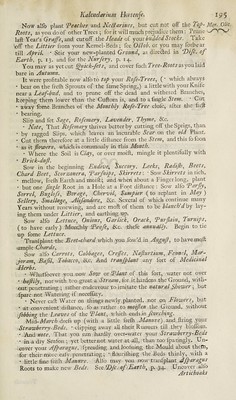 Kalendarium Hortense. 195
Now also plant Peaches and Nectarines, but cut not off the Top-
Roots, as you do of other Trees; for it will much prejudice them: Prune
last Year's Grafts, and cut off the Heads of your budded Stocks. Take
off the Litter from your Kernel-Beds; see Octob. or you may forbear
till April. Stir your new-planted Ground, as directed in Disc. of
Earth, p. 13. and for the Nursery, p. 14.
You may as yet cut Quick-sets, and cover such Tree-Roots as you laid
bare in Autumn.
It were profitable now also to top your Rose-Trees, (which always
bear on the fresh Sprouts of the same Spring,) a little with your Knife
near a Leaf-bud, and to prune off the dead and withered Branches,
keeping them lower than the Custom is, and to a single Stem. Cut
away some Branches of the Monthly Rose-Tree close, after the first
bearing.
Slip and set Sage, Rosemary, Lavender, Thyme, &c.
Note, That Rosemary thrives better by cutting off the Sprigs, than
by ragged Slips, which leaves an incurable Scar on the old Plant.
Cut them therefore at a little distance from the Stem, and this so soon
as it flowers, which is commonly in this Month.
Where the Soil is Clay, or over moist, mingle it plentifully with
Brick-dust.
Sow in the beginning Endive, Succory, Leeks, Radish, Beets,
Chard Beet, Scorzonera, Parsnips, Skirrets: Sow Skirrets in rich,
mellow, fresh Earth and moist; and when about a Finger-long, plant
but one single Root in a Hole at a Foot distance: Sow also Parsly,
Sorrel, Bugloss, Borage, Chervil, Sampier (to replant in May)
Sellery, Smallage, Alisanders, &c. Several of which continue many
Years without renewing, and are most of them to be blanch'd by lay-
ing them under Litter, and earthing up.
Sow also Lettuce, Onions, Garlick, Orach, Purslain, Turneps,
(to have early) Monthly Pease, &c. these annually. Begin to tie
up some Lettuce.
Transplant the Beet-chard which you sow'd in August, to have most
ample Chards.
Sow also Carrots, Cabbages, Cresses, Nasturtium, Fennel, Mar-
joram, Basil, Tobacco, &c. And transplant any sort of Medicinal
Herbs.
Whatsoever you now Sow or Plant of this sort, water not over
hastily, nor with too great a Stream, for it hardens the Ground, with-
out penetrating; rather endeavour to imitate the natural Shower, but
spare not Watering if necessary.
Never cast Water on things newly planted, nor on Flowers, but
at convenient distance, so as rather to moisten the Ground, without
sobbing the Leaves of the Plant, which ends in scorching.
Mid-March dress (up with a little fresh Manure) and string your
Strawberry-Beds. clipping away all their Runners till they blossom.
And note. That you can hardly over-water your Strawberry-Beds
in a dry Season; yet better not water at all, than too sparingly. Un-
cover your Asparagus, spreading and loosning the Mould about them,
for their more easy penetrating; Nourishing the Beds thinly, with a
little fine soft Manure. Also may you now transplant Asparagus
Roots to make new Beds. See Disc. of Earth, p. 34. Uncover also
Artichoaks
Mar. Oles.